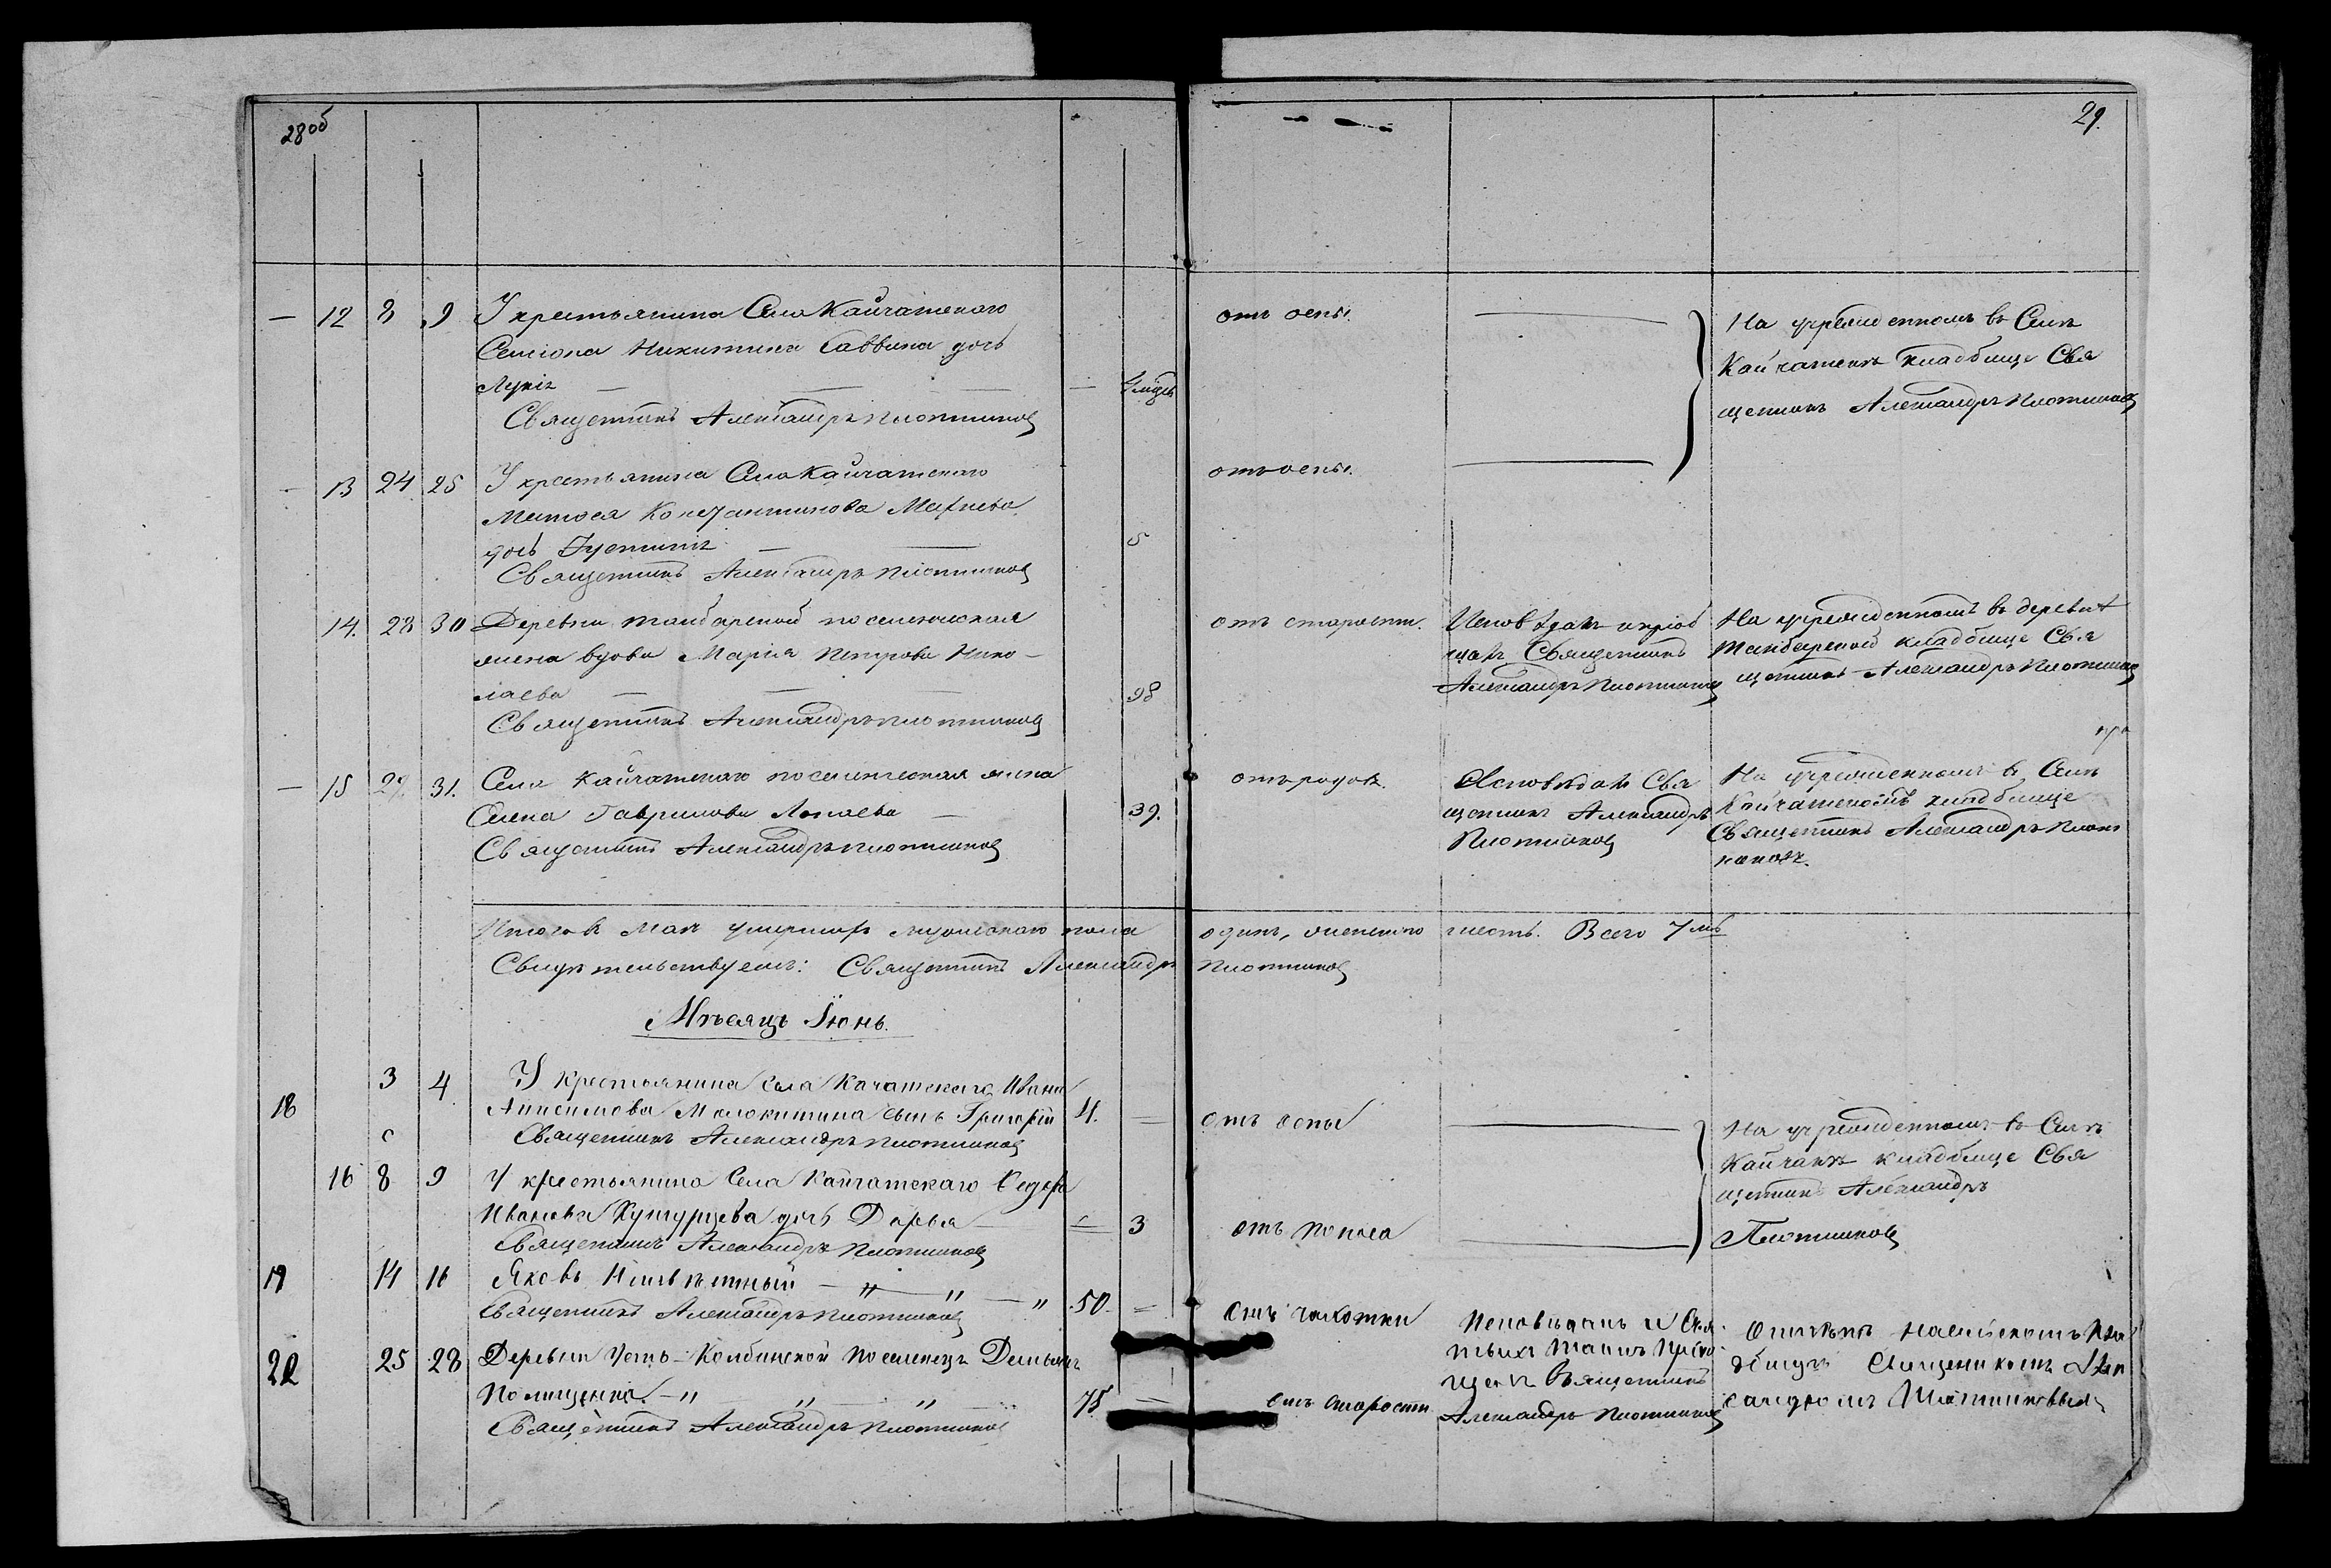 28об
29.
— 12 8 9 У крестьянина Села Кайчатскаго
Семіона Никитина Саввина дочь
Лукія — — — — 9 мѣсць
Священникъ Александръ Плотниковъ
отъ оспы.
На учрежденномъ въ Селѣ
Кайчатскѣ кладбищѣ Свя
щенникъ Александръ Плотниковъ
— 13 24 25 У крестьянина Села Кайчатскаго
Матѳея Констянтинова Махнева
дочь — — 5
Священникъ Александръ Плотниковъ
отъ оспы.
14. 28 30 Деревни Танбарской поселенческая
жена вдова Марія Петрова Нико-
лаева — — — 98
Священникъ Александръ Плотниковъ
отъ старости.
Исповѣдалъ и пріоб
щалъ Священникъ
Александръ Плотниковъ
На учрежденномъ въ деревнѣ
Танбарской кладбищѣ Свя
щенникъ Александръ Плотниковъ
— 15 29. 31. Села Кайчатскаго поселенческая жена
Елена Гаврилова — 39.
Священникъ Александръ Плотниковъ
отъ родовъ.
Исповѣдалъ Свя
щенникъ Александръ
Плотниковъ
На учрежденномъ въ Селѣ
Кайчатскомъ кладбищѣ
Священникъ Александръ Плот
никовъ.
Итого въ Маѣ умершихъ мужескаго пола одинъ, женскаго шесть. Всего 7мь
Свидѣтельствуемъ: Священникъ Александръ Плотниковъ
Мѣсяцъ Іюнь.
18 3 4 У крестьянина села Качатскаго Ивана
Анисимова Молокитина сынъ Григорій 4. —
Священникъ Александръ Плотниковъ
отъ оспы
На учрежденномъ въ Селѣ
Кайчакѣ кладбищѣ Свя
щенникъ Александръ
Плотниковъ
16 8 9 У крестьянина Села Кайчатскаго Ѳедора
Иванова дочь Дарья — 3
Священникъ Александръ Плотниковъ
отъ поноса
19 14 16 Яковъ Неизвѣстный — „ — „ — „ 50. =
Священникъ Александръ Плотниковъ
отъ чахотки
22 25 28 Деревни Усть-Колбинской поселенецъ Демьянъ
Полищенко — „ „ „ 75 —
Священникъ Александръ Плотниковъ
отъ старости
Исповѣданъ и Свя
тыхъ Таинъ пріоб
щенъ Священникъ
Александръ Плотниковъ
Отпѣтъ на сельскомъ кла
дбищѣ Священникомъ Алек
сандромъ Плотниковымъ